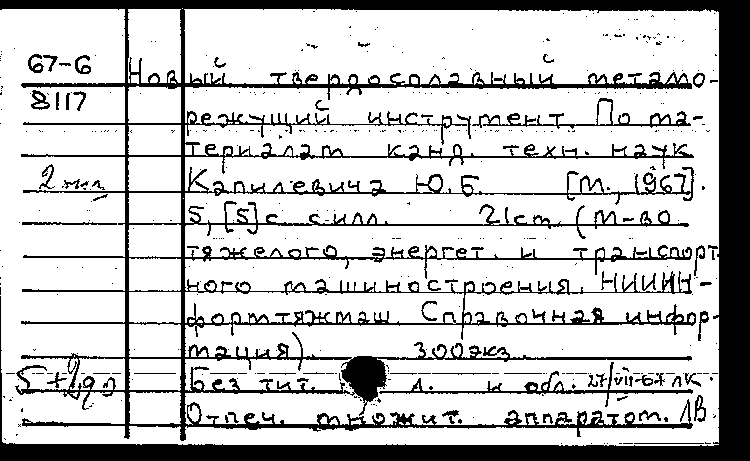 67-6 Новый твердосплавный метало-
8117 режущий инструмент. По ма-
териалам канд. техн. наук
Капилевича Ю.Б. [М., 1967].
5, [5] с с илл. 21 см (М-во
тяжелого, энергет. и транспорт-
ного машиностроения. НИИИН-
формтяжмаш. Справочная инфор-
мация). 300 экз.
Без тит. л. и обл. 27/VII-67 ЛК.
Отпеч. множит. аппаратом. ЛВ